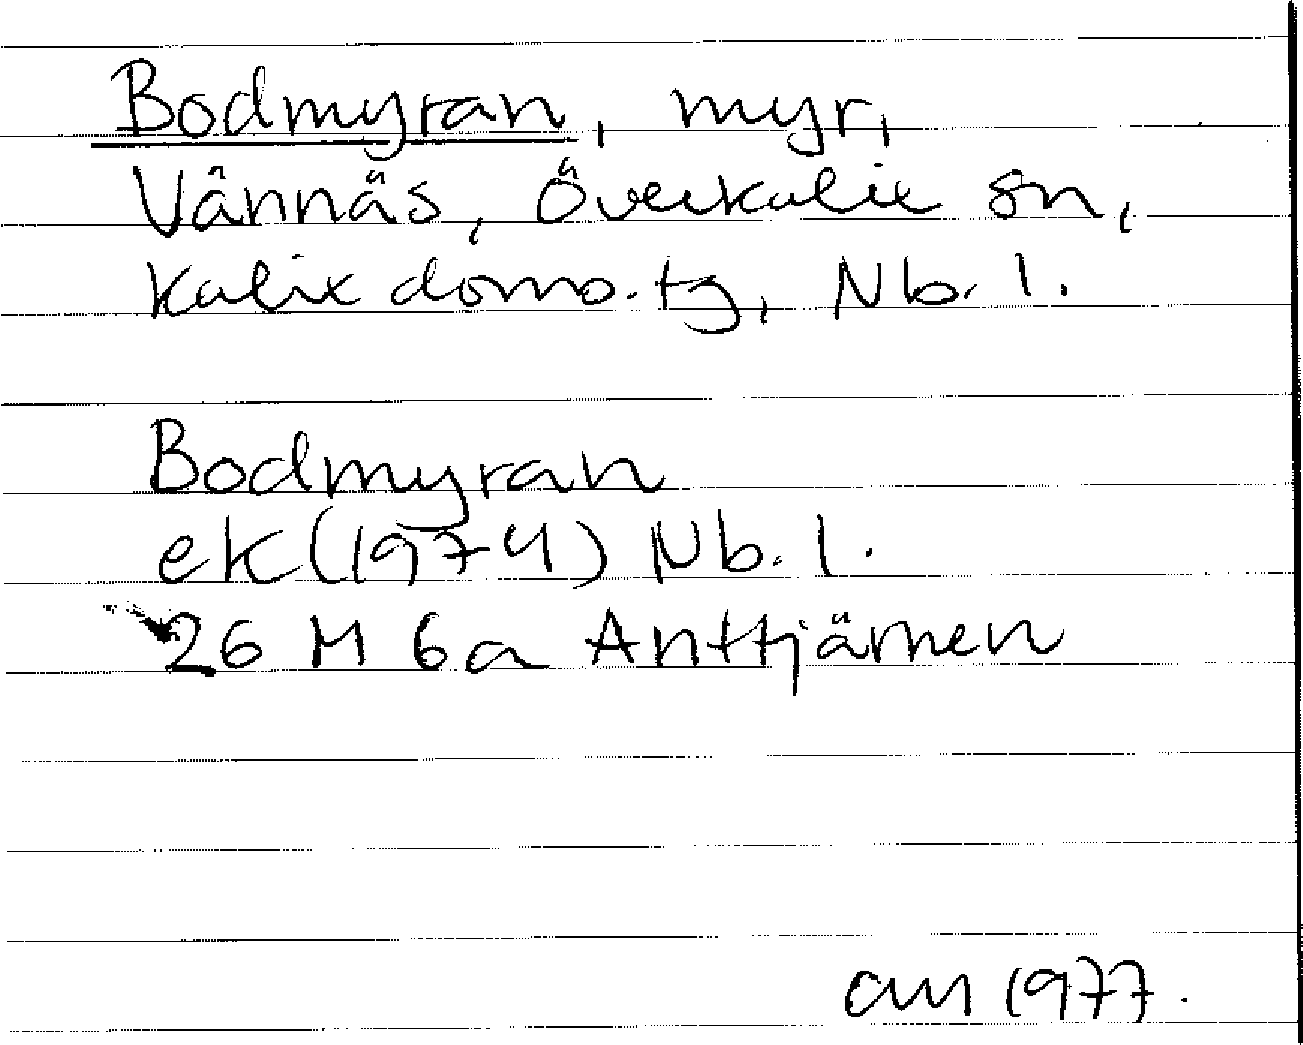 Bodmyran, myr,
Vännäs, Överkalix sn,
Kalix doms.tg, Nb. l.
Bodmyran
ek (1974) Nb. l.
26 M 6a Anttjärnen
1977.